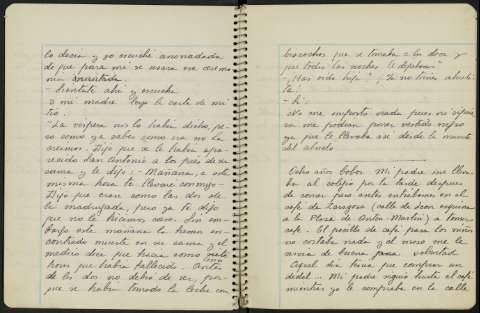 lo decía y yo escuché anonadada
de que para mí se usara una ceremo
nia
- Siéntate ahí y escucha
Y mi madre leyó la carta de mi
tío.
"La víspera nos lo había dicho, pe-
so como ya sabes como era no le
hicimos. Dijo que se le había apa-
recido San Antonio a los pies de su
cama y le dijo: - Mañana, a esta
misma hora te llevaré conmigo -
Dijo que eran como las dos de
la madrugada, pues ya te digo
que no le hicimos caso. Sin em-
bargo esta mañana lo hemos en-
contrado muerto en su cama y el
médico dice que hacía como siete
horas que había fallecido. Antes
de las dos no debió de ser por-
que se había tomado la leche con
bizcochos que se tomaba a las doce y
que todas las noches le dejaban"
¿Has oído hija? ¡Ya no tienes abueli-
to!
- Sí.
No me importó nada pues ni siquie-
ra me podían poner vestido negro
ya que lo llevaba así desde la muerte
del abuelo
Ocho años Mi padre me lleva-
ba al colegio por la tarde después
de comer pero antes entrábamos en el
café de Zaragoza (calle de León esquina
a la Plaza de Antón Martín) a tomar
café. El poquito de café para los niños
no costaba nada y el mozo me lo
servía de buena voluntad
Aquel día tenía que comprar un
dedal... Mi padre siguió hasta el café
mientras yo lo compraba en la calle